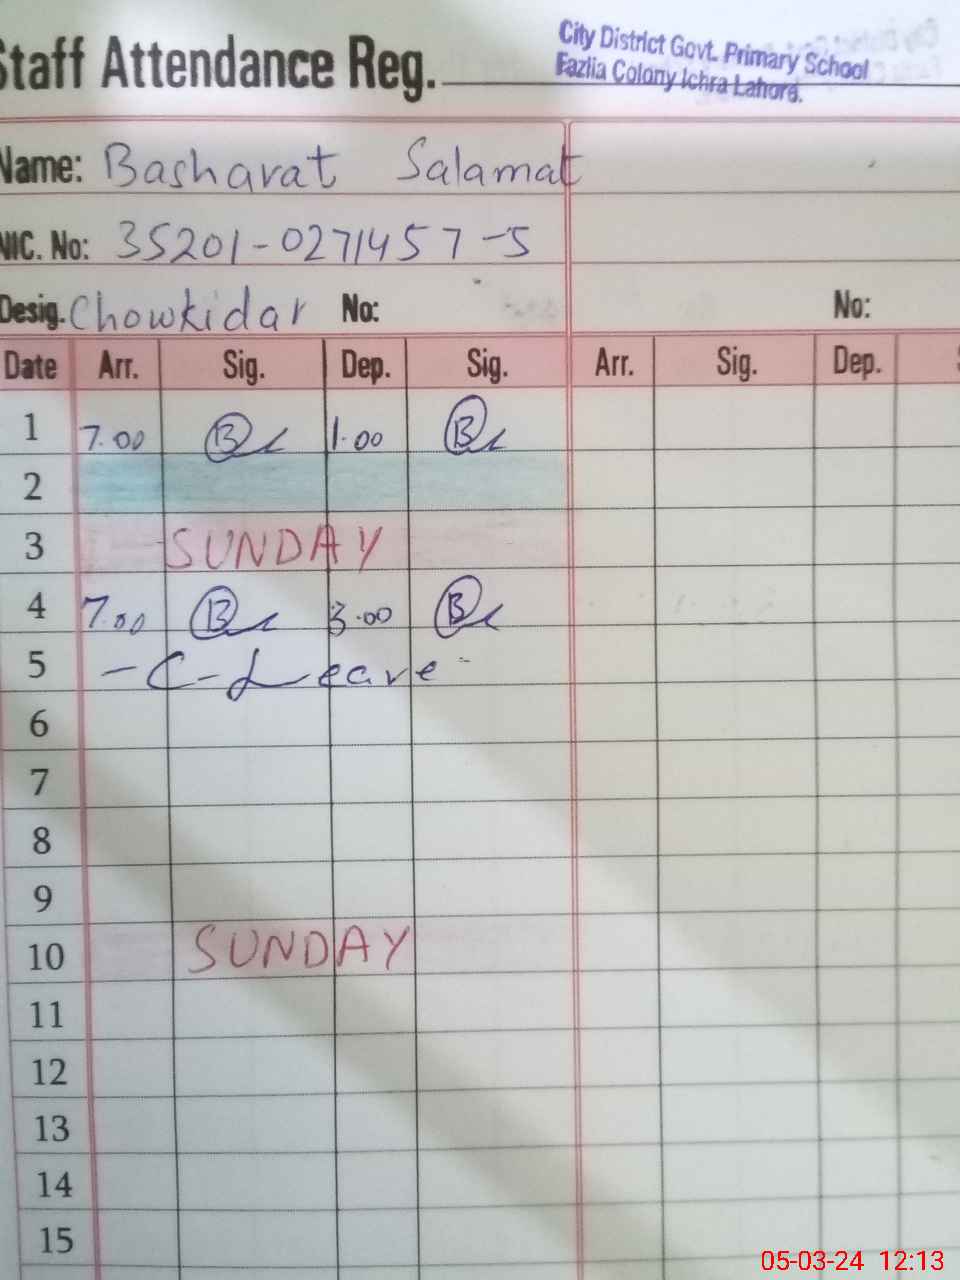 Staff Attendance Reg.
City District Govt. Primary School
Fazlia Colony Ichra Lahore.
Name: Basharat Salamat
NIC. No: 35201-0271457-5
Desig. Chowkidar No: No:
Date Arr. Sig. Dep. Sig. Arr. Sig. Dep. S
1 7.00 B 1.00 B
2
3 SUNDAY
4 7.00 B 3.00 B
5 -C-Leave-
6
7
8
9
10 SUNDAY
11
12
13
14
15
05-03-24 12:13